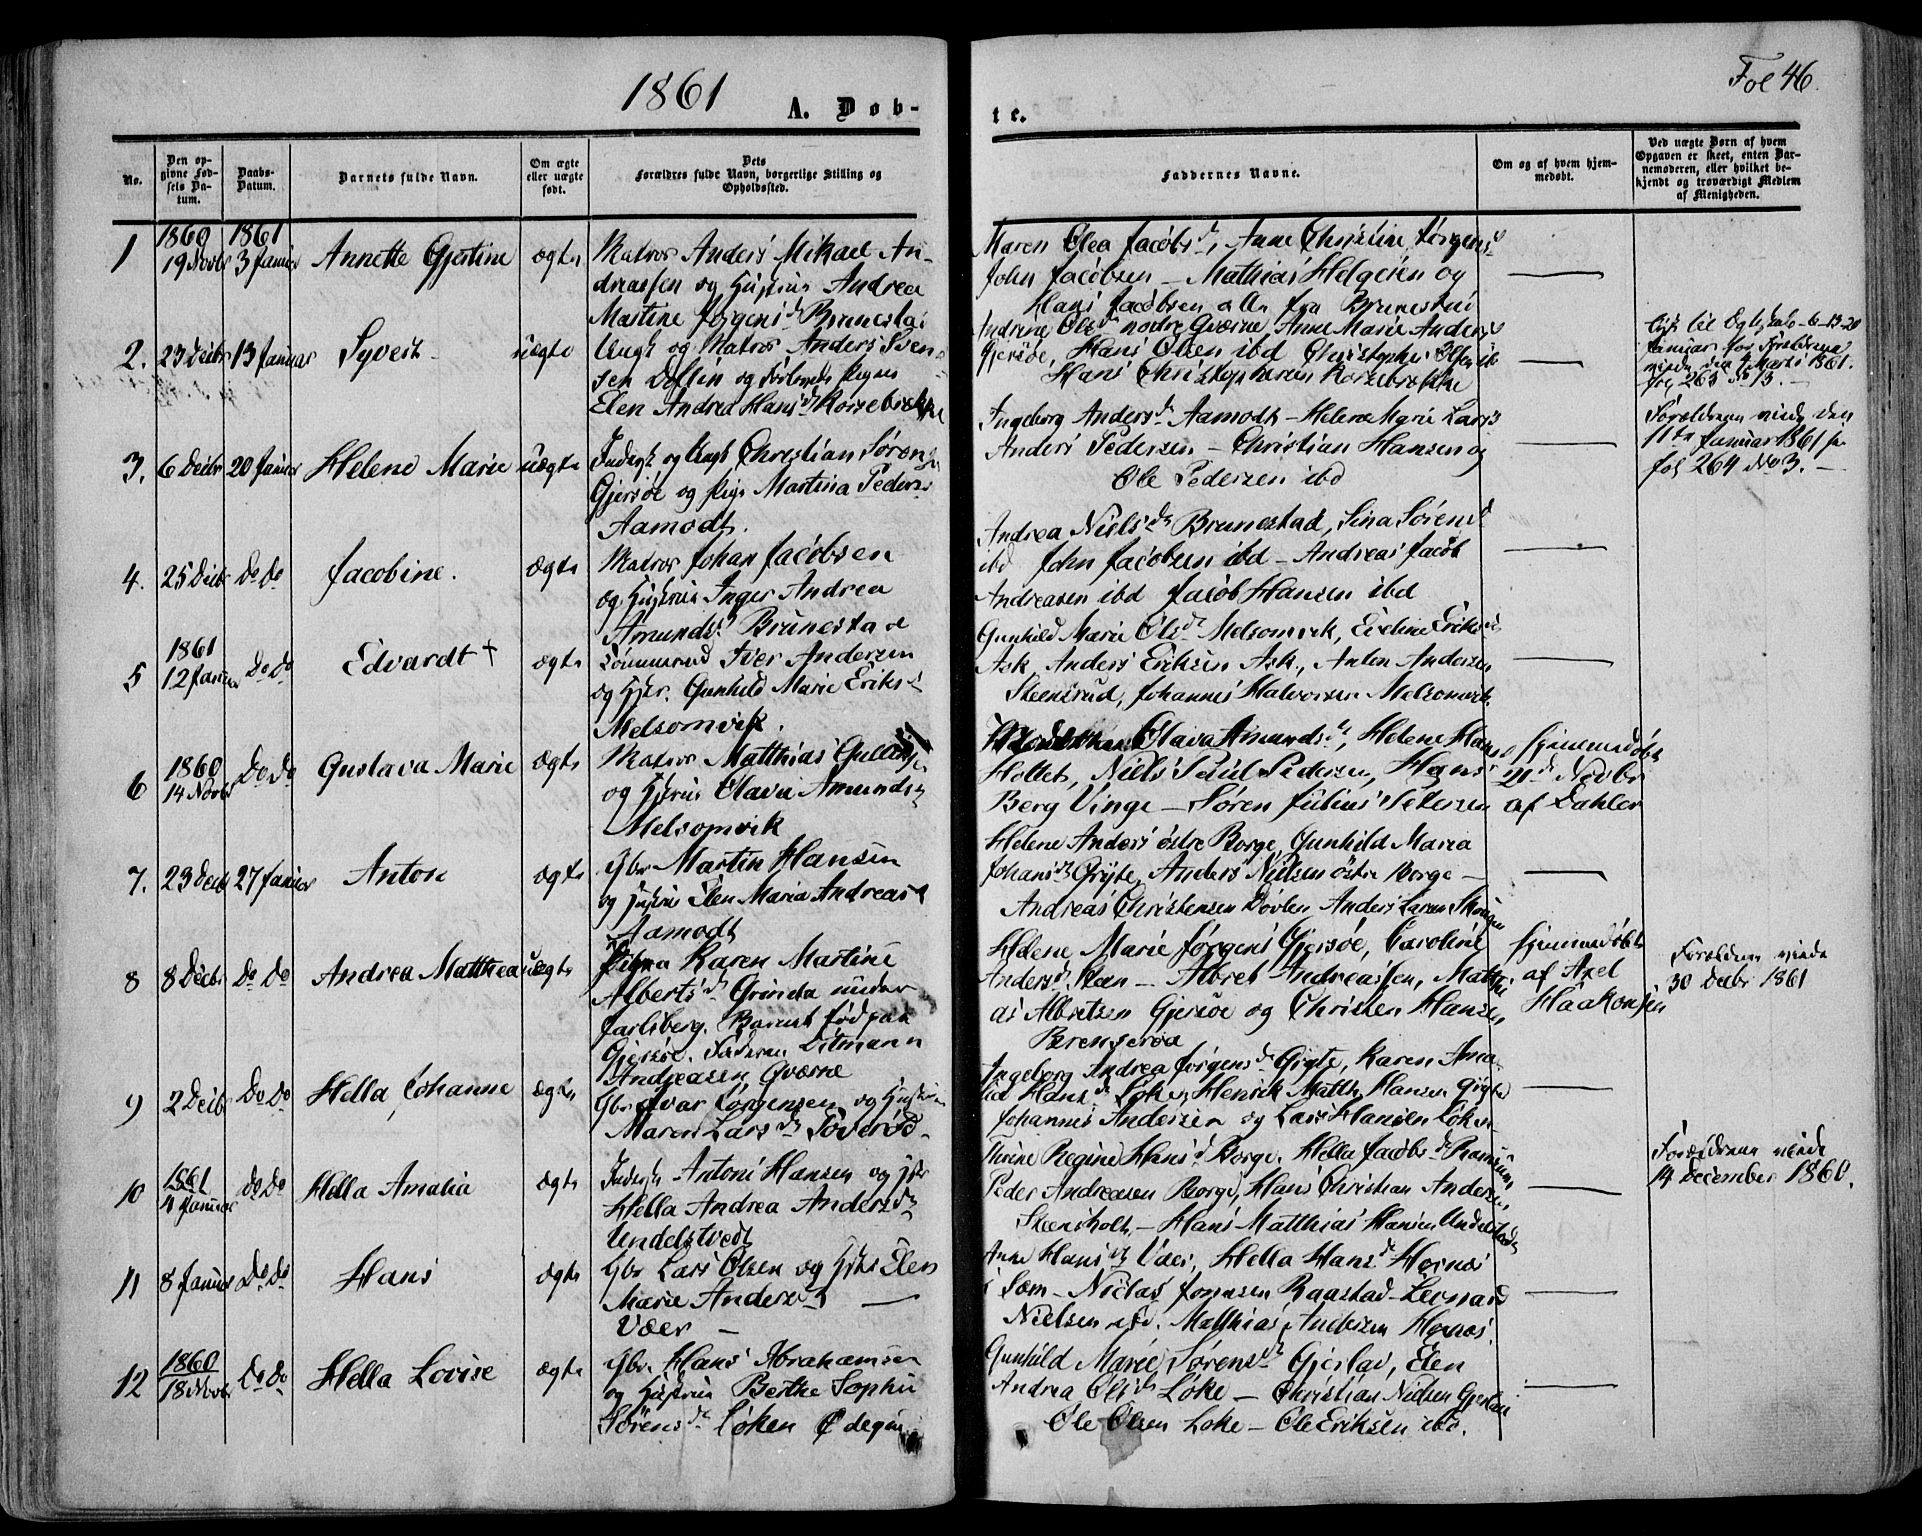 1861
A. Døb-
te.
Fol 46.
No.
Den op-
givne Fød-
sels Da-
tum.
Daabs-
Datum.
Barnets fulde Navn.
Om ægte
eller uægte
født.
Dets
Forældres fulde Navn, borgerlige Stilling og
Opholdssted.
Faddernes Navne.
Om og af hvem hjem-
medøbt.
Ved uægte Børn af hvem
Opgaven er skeet, enten Bar-
nemoderen, eller hvilket be-
kjendt og troværdigt Medlem
af Menigheden.
1
1860
19 Novbr
1861
3 Januar
Annette Gjertine
ægte
Matros Anders Mikael An-
dreassen og Hustru Andrea
Martine Jørgensd. Brunestad
Maren Olea Jacobsd., Anne Christine Jørgensd
John Jacobsen - Mathias Helgesen og
Hans Jacobsen alle fra Brunestad
2.
23 Decbr
13 Januar
Syvert
uægte
Ungk og Matros Anders Sven-
sen og Pigen
Elen Andrea Hansd.
Andrine Olsd. nodre Qværne, Anne Marie Andersd
Gjersøe, Hans Olsen ibd Christopher Olsen ib
Hans Christophersen
Januar for Forældrene
viede den Marts 1861.
fol 265 No 13.
3.
6 Decbr
20 Januar
Helene Marie
uægte
Inderst og Ungk. Christian Sørens
Gjersøe og Pige Martina Peders
Aamodt.
Ingeborg Andersd. Aamodt - Helene Marie Larsd
Anders Pedersen - Christian Hansen og
Ole Pedersen ibd
Forældrene viede den
11te Januar 1861 se
fol 264 No 3.
4.
25 Decbr
Do Do
Jacobine.
ægte
Matros Johan Jacobsen
og Hustrue Inger Andrea
Amundsd. Brunestad
Andrea Nielsd. Brunestad, Sina Sørensd
ibd John Jacobsen ibd - Andreas Jacob
Andreasen ibd Jacob Hansen ibd
5
1861
12 Januar
Do Do
Edvardt +
ægte
Tømmermd Iver Andersen
og Hstr. Gunhild Marie Eriksd
Melsomvik.
Gunhild Marie Olsd. Melsomvik, Eveline Eriksd
Ask, Anders Eriksen Ask, Anton Andersen
Steensrud, Johannes Halvorsen Melsomvik.
6
1860
14 Novbr
Do Do
Gustava Marie
ægte
Matros Matthias
og Hstrue Olava Amundsd
Melsomvik
Olava Amundsd., Helene Hansd
Holtet, Niels Paul Pedersen, Hans
Berg Vinge - Søren Julius Petersen
hjemmedøbt
21de Novbr
af Dahler
7.
23 Decb
27 Januar
Anton
ægte
Gbr Martin Hansen
og Hustrue Elen Maria Andreasd
Aamodt
Helene Andersd østre Borge, Gunhild Maria
Johansd. Grÿte, Anders Nielsen østre Borge -
Andreas Christensen Døvlen Anders Larsen Skougen
8
8 Decbr
Do Do
Andrea Matthea
uægte
Pigen Karen Martine
Albertsd. Grinda under
Jarlsberg. Barnet født paa
Gjersøe. Faderen Ditmann
Andreasen Qværne
Helene Marie Jørgensd Gjersøe, Caroline
Andersd. Steen - Albret Andreassen, Matthi
as Albretsen Gjersøe og Christen Hansen
hjemmedøbt
af Axel
Haakonsen
Forældrene viede
30 Decbr 1861
9
2 Decbr
Do Do
Hella Johanne
ægte
Gbr Ivar Jørgensen og Hustrue
Maren Larsd. Toverød
Ingeborg Andrea Jørgensd. Grÿte, Karen Ama-
lia Hansd. Løken, Henrik Matth. Hansen Grÿte
Johannes Andersen og Lars Hansen Løken
10
1861
4 Januar
Do Do
Hella Amalia
ægte
Inderst Anton Hansen og Hstr
Hella Andrea Andersd.
Undelstvedt
Thrine Regine Hansd Borge, Hella Jacobsd.
Peder Andreasen Borge, Hans Christian Anders
Steensholt, - Hans Matthias Hansen
Forældrene viede
14 December 1860.
11
8 Januar
Do Do
Hans
ægte
Gbr Lars Olsen og Hstr Elen
Marie Andersd. -
Væer -
Anne Hansd. Væer, Hella Hansd. Hegnæs
i Sem - Niclas Jonasen Raastad - Lernard
Nielsen ibd. Matthias Andersen Hegnæs.
12
1860
18 Novbr
Do Do
Hella Lovise
ægte
Gbr. Hans Abrahamsen
og Hustrue Berthe Sophie
Sørensd. Løken Ødegaard
Gunhild Marie Sørensd. Gjerstad, Elen
Andrea Olsd. Løke - Christian Nielsen Gjerstad
Ole Olsen Løke - Ole Eriksen ibd.